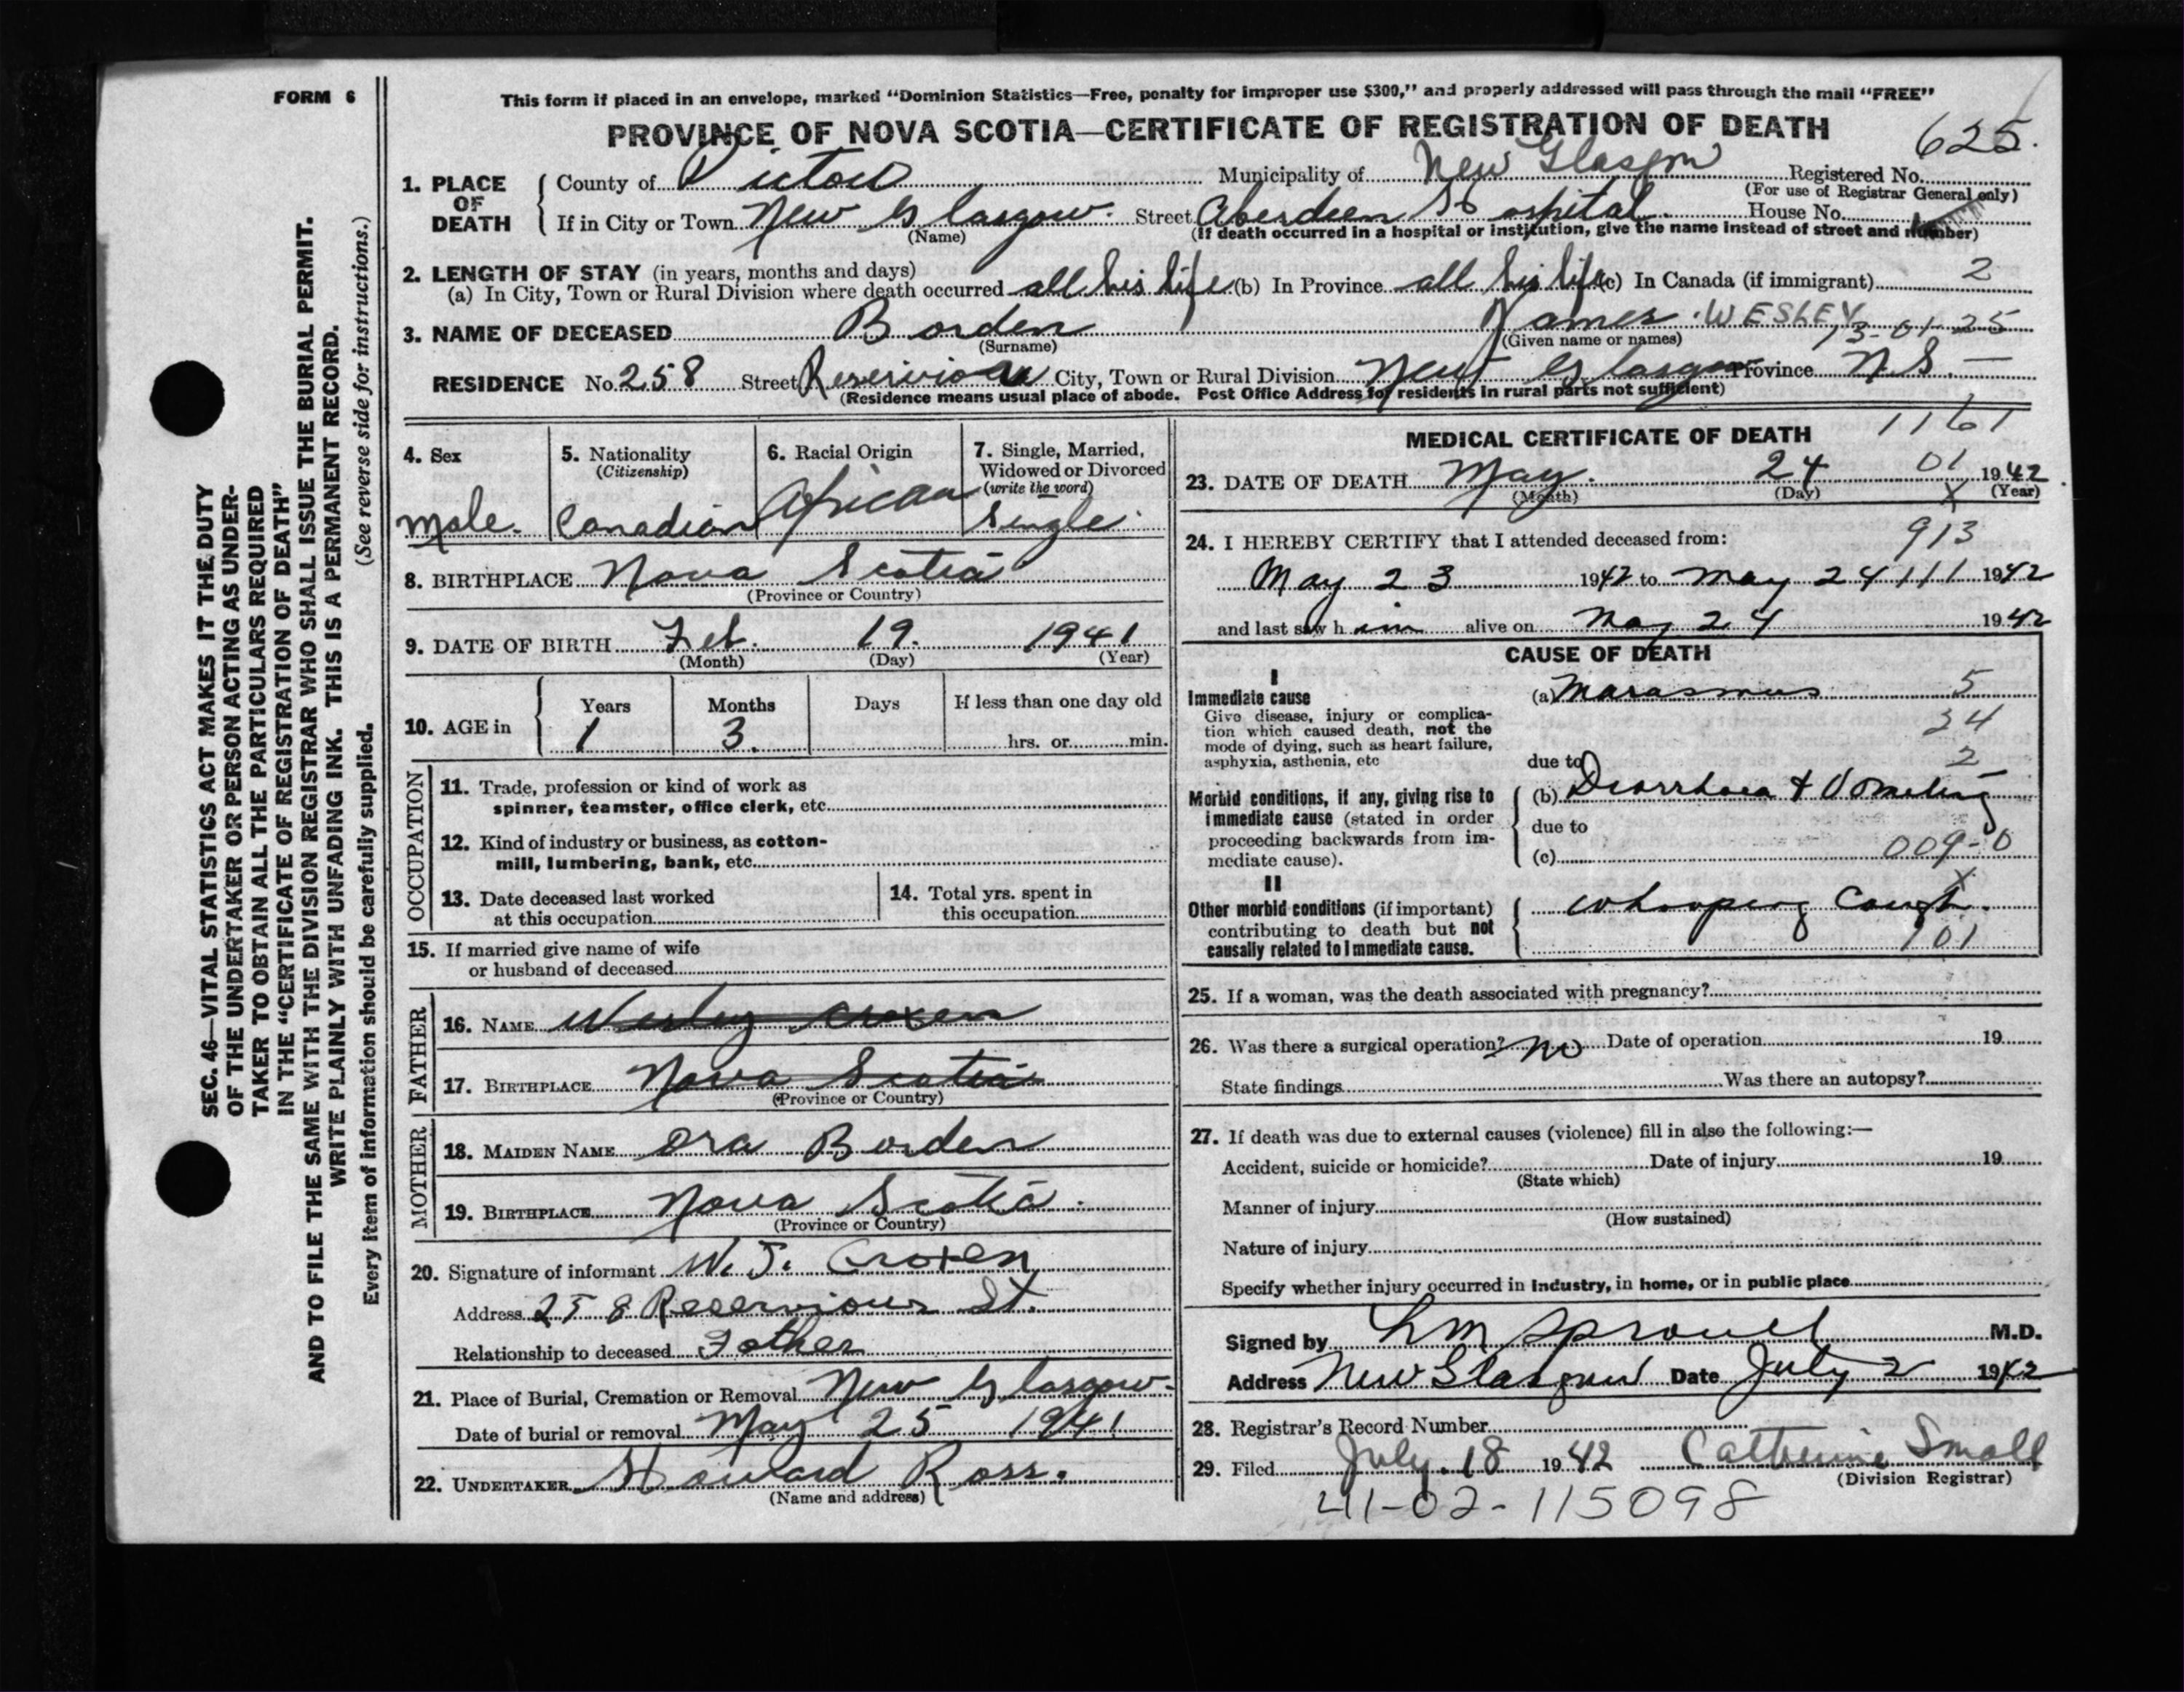 FORM 6
This form if placed in an envelope, marked "Dominion Statistics—Free, penalty for improper use $300," and properly addressed will pass through the mail "FREE"
PROVINCE OF NOVA SCOTIA—CERTIFICATE OF REGISTRATION OF DEATH
625.
1. PLACE OF DEATH { County of Pictou Municipality of New Glasgow Registered No.
(For use of Registrar General only)
If in City or Town New Glasgow. Street Aberdeen Hospital. House No.
(Name) (If death occurred in a hospital or institution, give the name instead of street and number)
2. LENGTH OF STAY (in years, months and days)
(a) In City, Town or Rural Division where death occurred all his life (b) In Province all his life (c) In Canada (if immigrant) 2
3. NAME OF DECEASED Borden James WESLEY
(Surname) (Given name or names) 13-01-25
RESIDENCE No. 258 Street City, Town or Rural Division New Glasgow Province N.S. —
(Residence means usual place of abode. Post Office Address for residents in rural parts not sufficient)
4. Sex Male.
5. Nationality (Citizenship) Canadian
6. Racial Origin African
7. Single, Married, Widowed or Divorced (write the word) Single
8. BIRTHPLACE Nova Scotia
(Province or Country)
9. DATE OF BIRTH Feb. 19. 1941
(Month) (Day) (Year)
10. AGE in { Years Months Days If less than one day old
1 3. hrs. or min.
OCCUPATION
11. Trade, profession or kind of work as
spinner, teamster, office clerk, etc.
12. Kind of industry or business, as cotton-
mill, lumbering, bank, etc.
13. Date deceased last worked
at this occupation
14. Total yrs. spent in
this occupation
15. If married give name of wife
or husband of deceased
FATHER
16. NAME Wesley Croxen
17. BIRTHPLACE Nova Scotia
(Province or Country)
MOTHER
18. MAIDEN NAME Ora Borden
19. BIRTHPLACE Nova Scotia.
(Province or Country)
20. Signature of informant W. J. Croxen
Address 258 Reserviour St.
Relationship to deceased Father
21. Place of Burial, Cremation or Removal New Glasgow.
Date of burial or removal May 25 1941
22. UNDERTAKER Howard Ross.
(Name and address)
MEDICAL CERTIFICATE OF DEATH 1161
23. DATE OF DEATH May. 24 01 1942
(Month) (Day) X (Year)
24. I HEREBY CERTIFY that I attended deceased from: 913
May 23 1942 to May 24 111 1942
and last saw him alive on May 24 1942
CAUSE OF DEATH
I
Immediate cause (a) Marasmus 5
Give disease, injury or complica-
tion which caused death, not the
mode of dying, such as heart failure,
asphyxia, asthenia, etc
34
2
due to
Morbid conditions, if any, giving rise to
immediate cause (stated in order
proceeding backwards from im-
mediate cause).
(b) Diarrhoea & Vomiting
due to
(c) 009-0
X
II
Other morbid conditions (if important)
contributing to death but not
causally related to immediate cause.
Whooping Cough.
101
25. If a woman, was the death associated with pregnancy?
26. Was there a surgical operation? No Date of operation 19
State findings Was there an autopsy?
27. If death was due to external causes (violence) fill in also the following:—
Accident, suicide or homicide? Date of injury 19
(State which)
Manner of injury
(How sustained)
Nature of injury
Specify whether injury occurred in industry, in home, or in public place
Signed by M.D.
Address New Glasgow Date July 2 1942
28. Registrar's Record Number
29. Filed July. 18 1942 Catherine Small
(Division Registrar)
41-02-115098
SEC. 46—VITAL STATISTICS ACT MAKES IT THE DUTY
OF THE UNDERTAKER OR PERSON ACTING AS UNDER-
TAKER TO OBTAIN ALL THE PARTICULARS REQUIRED
IN THE "CERTIFICATE OF REGISTRATION OF DEATH"
AND TO FILE THE SAME WITH THE DIVISION REGISTRAR WHO SHALL ISSUE THE BURIAL PERMIT.
WRITE PLAINLY WITH UNFADING INK. THIS IS A PERMANENT RECORD.
(See reverse side for instructions.)
Every item of information should be carefully supplied.